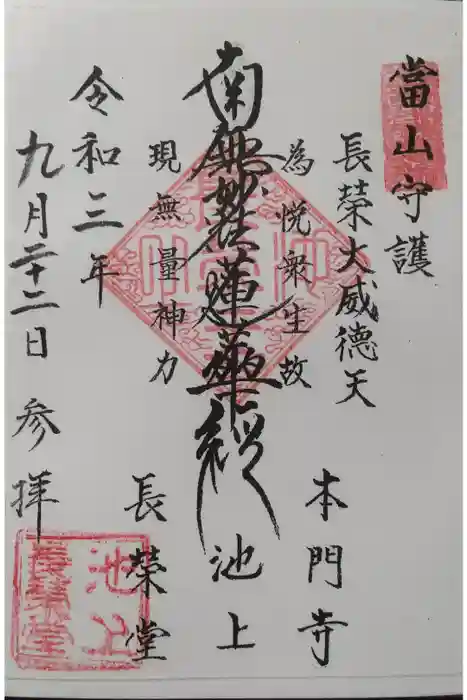 當山守護
長榮大威德天
為悦衆生故
南無妙法蓮華経
現無量神力
令和三年
九月二十二日 参拝
本門寺
池上
長榮堂
池上
長榮堂